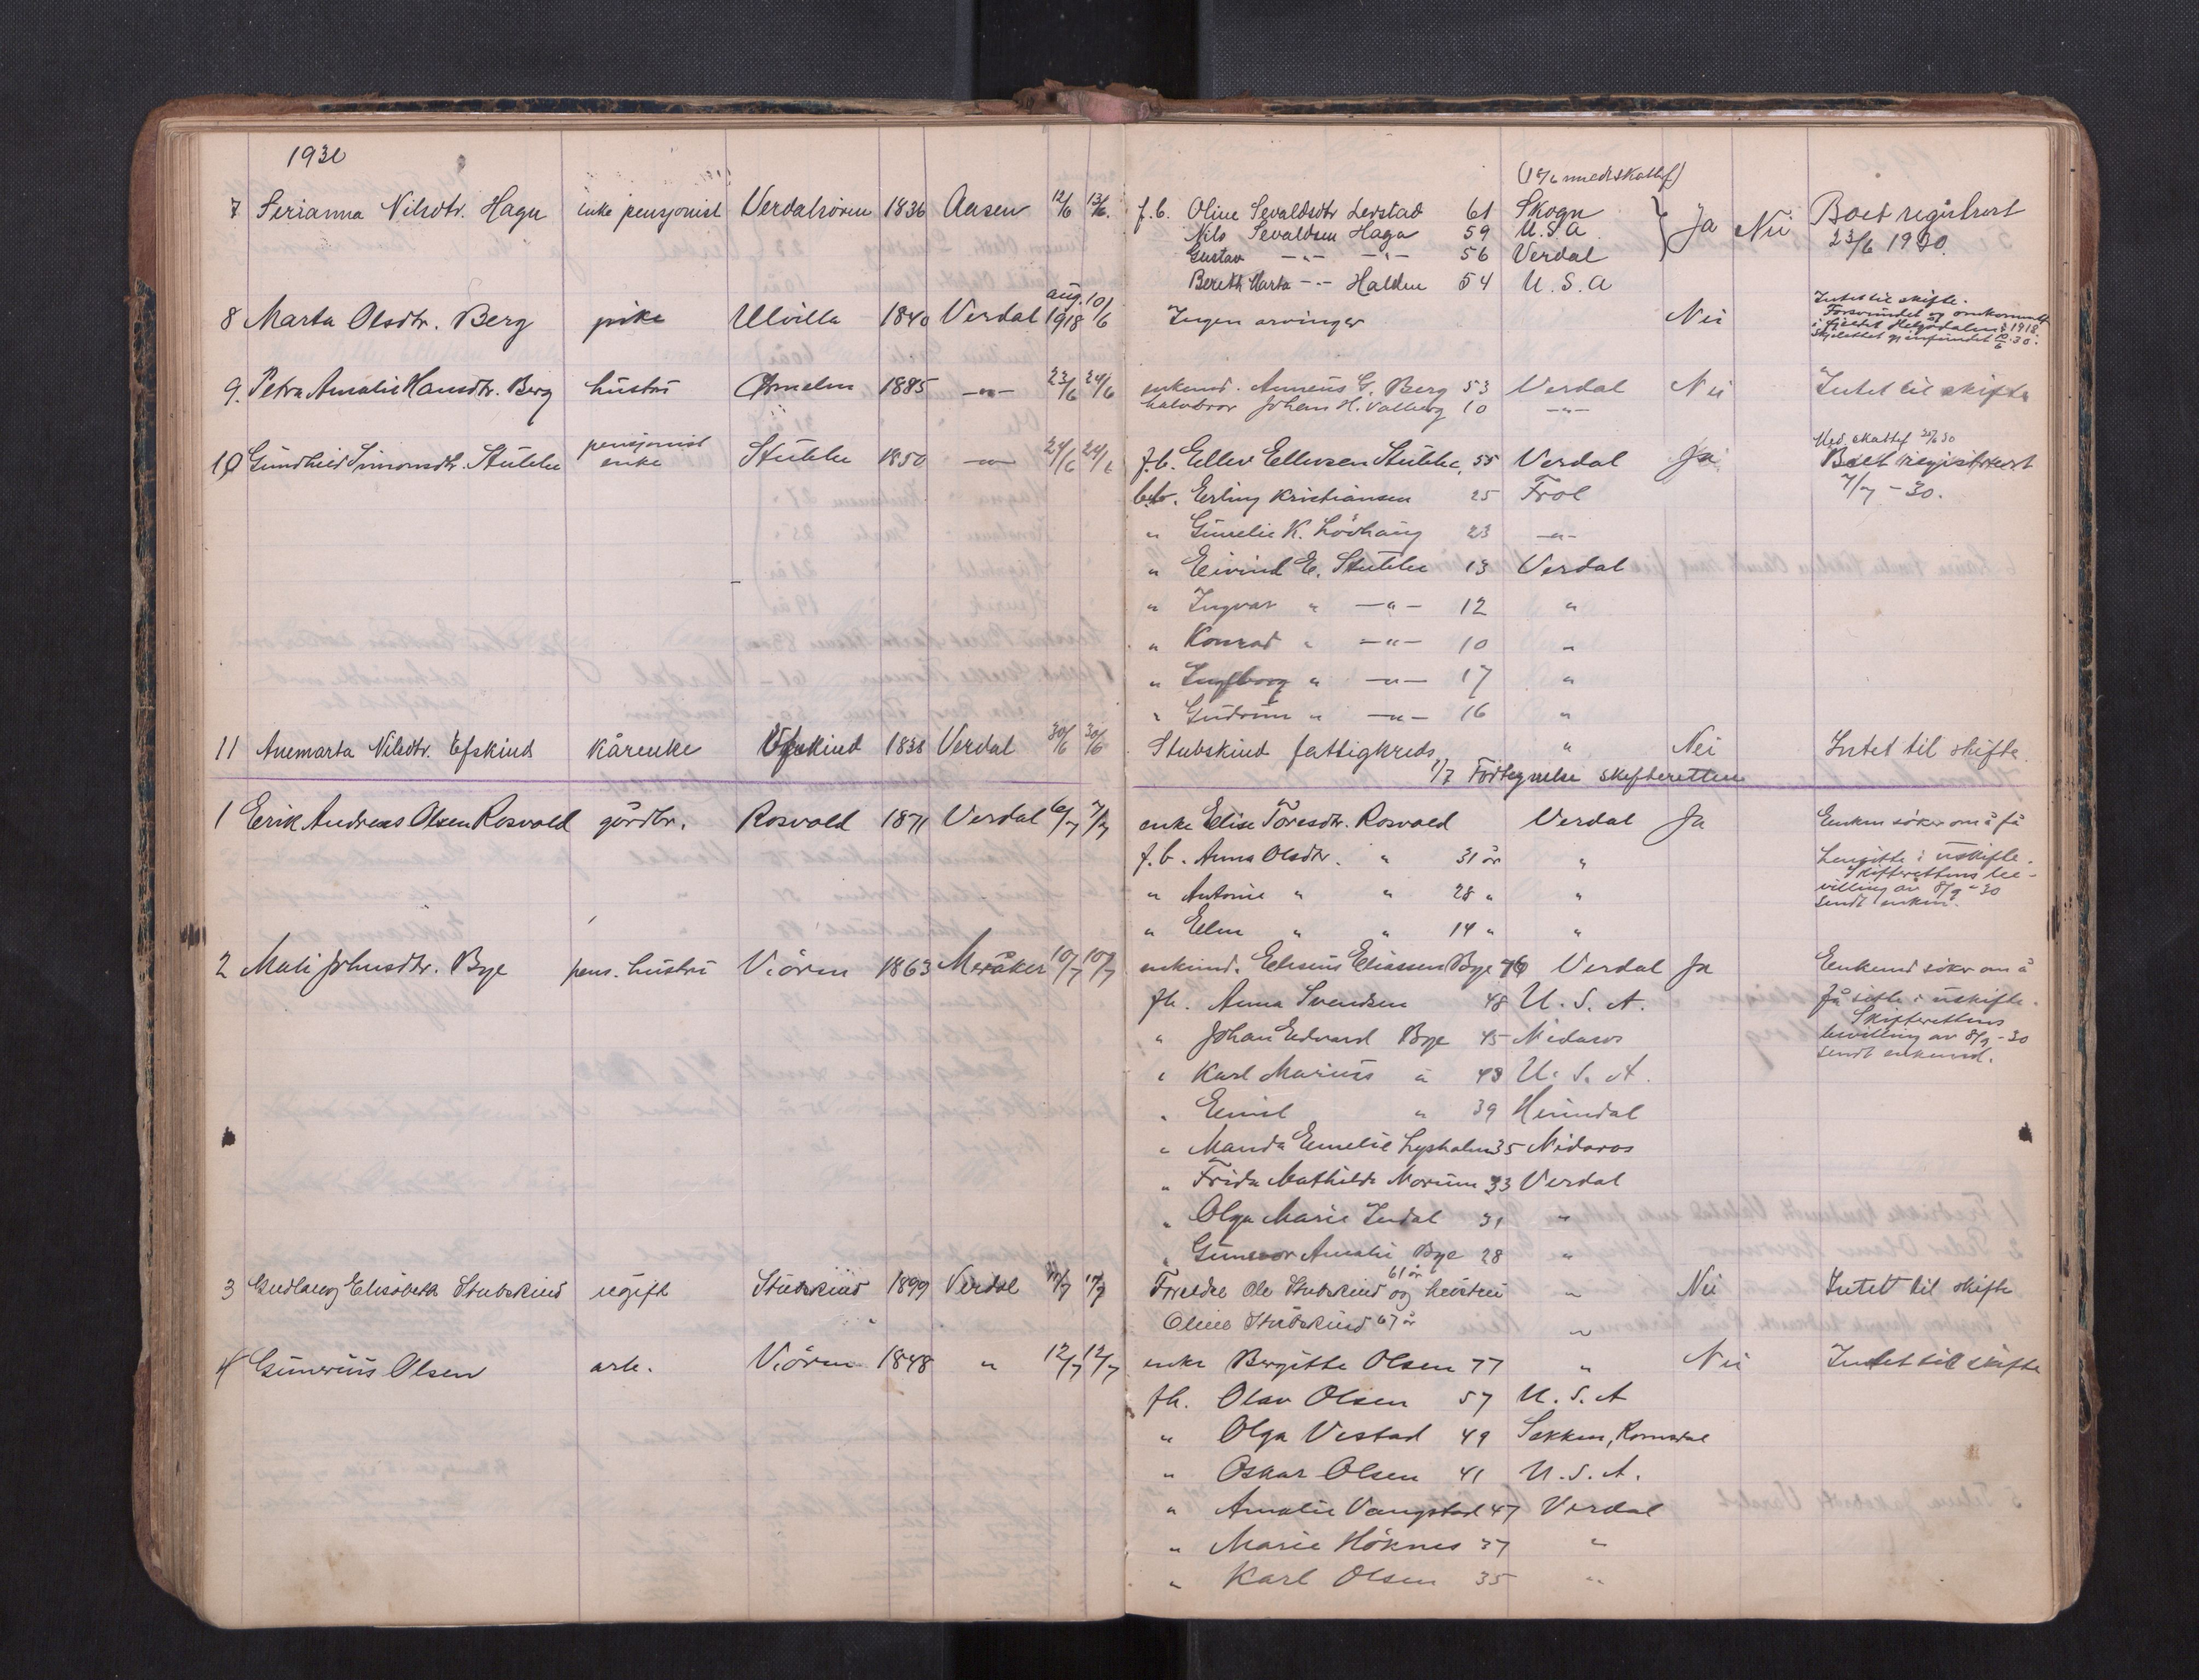 1930
(18/6 medskattef)
7 Serianna Nilsdtr. Hagen enke pensjonist Verdalsøren 1836 Aasen 12/6 13/6. f.b. Oline Sevaldsdtr Leistad 61 Skogn Ja Nei Boet registrert
Nils Sevaldsen Hagen 59 U.S.A 23/6 1930.
Gustav —"— —"— 56 Verdal
Bereth Marta —"— Halden 54 U.S.A
8 Marta Olsdtr. Berg pike Ulvilla 1840 Verdal aug. 1918 10/6 Ingen arvinger Nei Intet til skifte.
Forsvundet og omkommet
i fjeldet Helgådalen i 1918.
Skjelettet gjenfundet 10/6 30.
9. Petra Amalie Hansdtr. Berg hustru 1885 —"— 23/6 24/6 enkemd. Anneus G. Berg 53 Verdal Nei Intet til skifte
halvbror Johan H. Valberg 10 —"—
Med. skattef 30
10 Gundhild Simonsdtr. Stubbe pensjonist enke Stubbe 1850 —"— 24/6 24/6 f.b. Ellev Ellevsen Stubbe, 55 Verdal Ja Boet registrert
b.b. Erling Kristiansen 25 Frol 7/7 - 30.
" Gunelie K. Lövhaug 23 —"—
" Eivind E. Stubbe 13 Verdal
" Ingvar " —"— 12 "
" Konrad " —"— 10 "
" Ingeborg " —"— 17 "
" Gudrun " —"— 16 "
11 Anemarta Nilsdtr. Efskind kårenke Efskind 1838 Verdal 30/6 30/6 Stubskind fattigkreds " Nei Intet til skifte
1/7 Fortegnelse skifteretten
1 Erik Andreas Olsen Rosvold gårdbr. Rosvold 1871 Verdal 6/7 7/7 enke Elise Toresdtr. Rosvold Verdal Ja Enken söker om å få
f.b. Anna Olsdtr. " 31 år " hensitte i uskifte.
" Antonie " " 28 " " Skifterettens be-
villing av 8/9 - 30
sendt enken.
" Elen " " 14 " "
2 Mali Johnsdtr. Bye pens. hustru Viören 1863 Meråker 10/7 10/7 enkemd. Eliseus Eliassen Bye 76 Verdal Ja Enkemd söker om å
fb. Anna Svendsen 48 U.S.A. få sitte i uskifte.
" Johan Edvard Bye 45 Nidaros Skifterettens
bevilling av 8/9 - 30
sendt enkemd.
" Karl Marius " 43 U.S.A.
" Emil " 39 Heimdal
" Manda Emelie Lysholm 35 Nidaros
" Frida Mathilde Morum 33 Verdal
" Olga Marie Indal 31 "
" Gunvor Amalie Bye 28 "
3 Gudlaug Elisabeth Stubskind ugift Stubskind 1899 Verdal 17/7 Foreldre Ole Stubskind 61 år og hustru " Nei Intet til skifte
Oline Stubskind 67 år "
4 Gunerius Olsen arb. Viören 1848 " 12/7 12/7 enke Bergitte Olsen 77 " Nei Intet til skifte
fb. Olav Olsen 57 U.S.A
" Olga Vestad 49 Sekken, Romsdal
" Oskar Olsen 41 U.S.A.
" Amalie Vangstad 47 Verdal
" Marie Höknes 37 "
" Karl Olsen 35 "